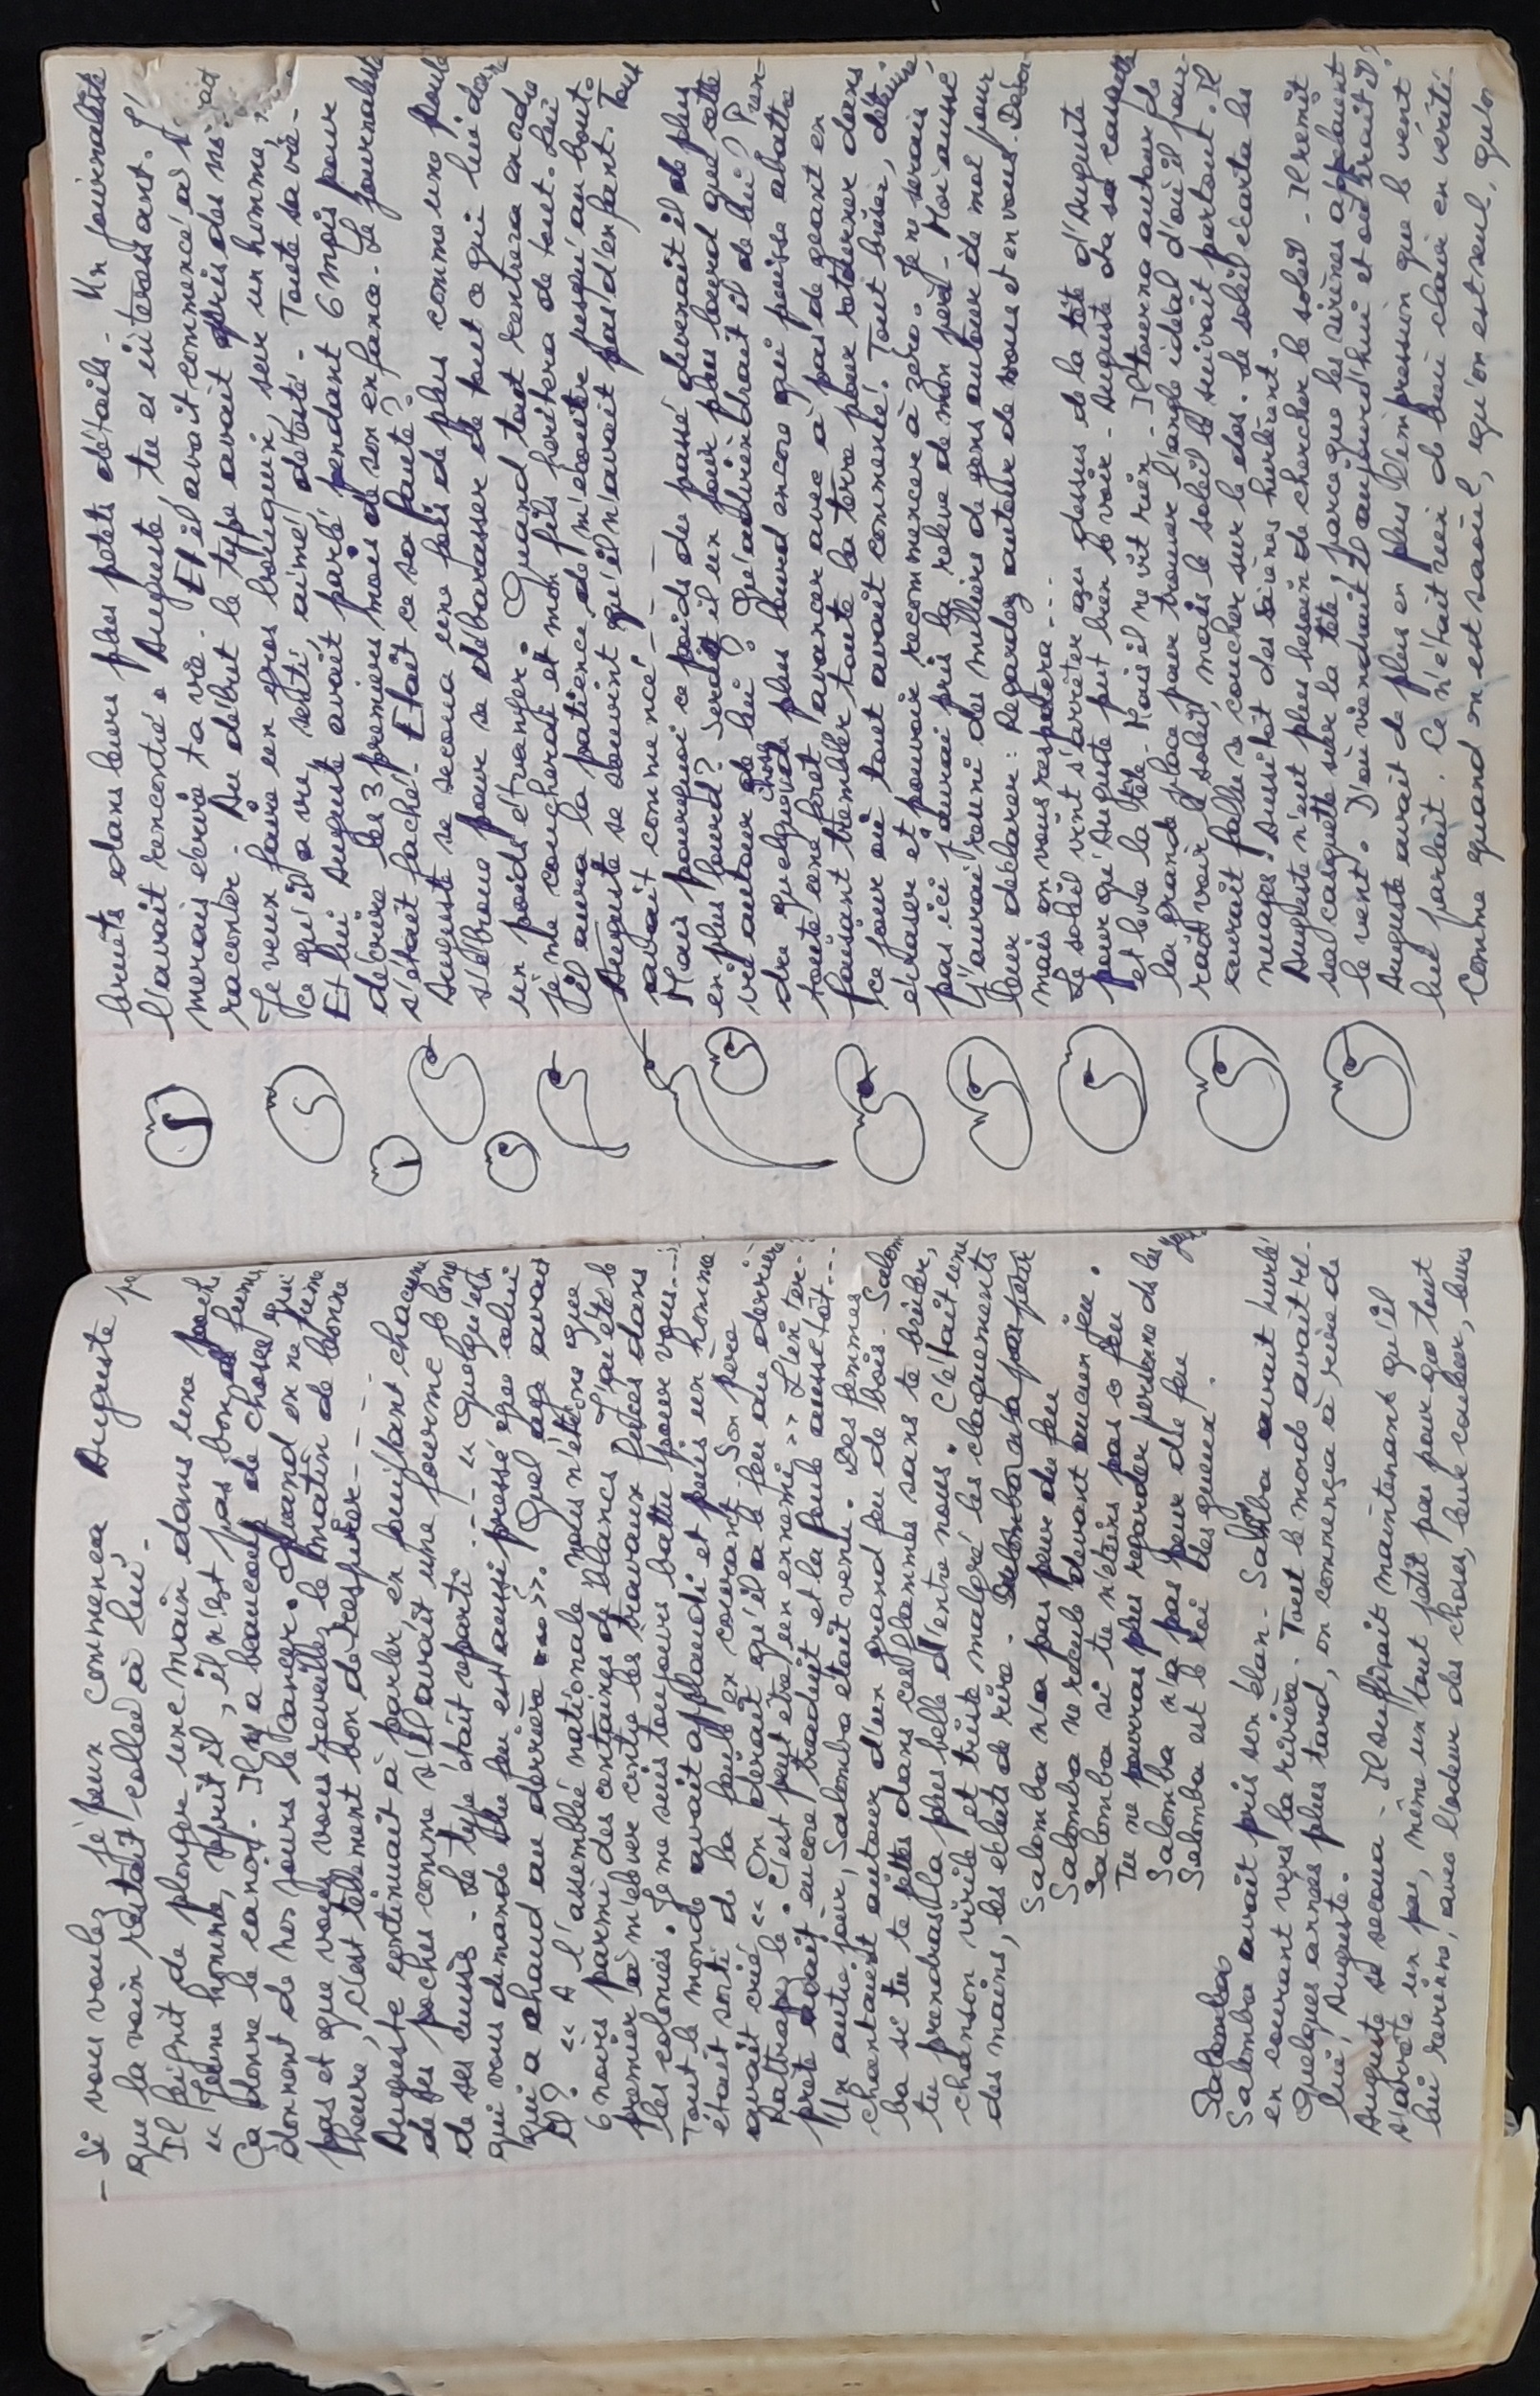 - Si vous voulez je peux commença Auguste
que la voix restait collée à lui.
Il feignit de plonger une main dans une poche
"Jeune homme, reprit il, il n'est pas bon de fumer
Ça donne le cancer. Il y a beaucoup de choses qui
donnent de nos jours le cancer. Quand on ne fume
pas et que vous vous réveillez le matin de bonne
heure, c'est tellement bon de respirer - - -
Auguste continuait à parler, en puisant chacune
de ses poches comme s'il avait une fourmie le long
de ses cuisses. Le type était reparti - - - « Quelqu'un
qui vous demande du feu est aussi pressé que celui
qui a chaud au derrière ---». Quel âge avait
il? « A l'assemblée nationale nous n'étions que
6 noirs parmi des centaines de blancs. J'ai été le
premier à m'élever contre les travaux forcés dans
les colonies. Je me suis toujours battu pour vous ---»
Tout le monde avait applaudi et puis un homme
était sorti de la foule en courant. Son père
avait crié « On dirait qu'il a le feu au derrière
Rattrapez le. C'est peut être un ennemi » L'inter-
prète avait encore traduit et la foule aussitôt ---
Un autre jour, Salomba était venu. Des femmes
chantaient autour d'un grand feu de bois. Salom
ba si tu te jettes dans ces flammes sans te brûler,
tu prendras la plus belle d'entre nous. C'était une
chanson virile et triste malgré les claquements
des mains, les éclats de rire. Salomba n'a pas peur
Salomba n'a pas peur du feu
Salomba ne recule devant aucun feu.
Salomba si tu n'éteins pas ce feu
Tu ne pourras plus regarder personne dans les yeux
Salomba n'a pas peur du feu
Salomba est le roi des gueux.
Salomba
Salomba avait pris son élan. Salomba avait hurlé
en courant vers la rivière. Tout le monde avait re-
Quelques années plus tard, on commença à rire de
lui, Auguste.
Auguste se secoua. Il suffisait maintenant qu'il
s'arrête un peu, même un tout petit peu pour que tout
lui revienne, avec l'odeur des choses, leur couleur, leurs
bruits dans leurs plus petits détails. Un journaliste
l'avait rencontré « Auguste, tu es intéressant. J'
merais écrire ta vie. Et il avait commencé à
raconter. Au début le type avait pris des no
Je veux faire un gros bouquin, sur un homme,
ce qu'il a vu, senti, aimé, détesté. Toute sa vie.
Et lui Auguste avait parlé pendant 6 mois pour
décrire les 3 premiers mois de son enfance. Le journaliste
s'était fâché. Etait ce sa faute?
Auguste se secoua une fois de plus comme une poule
s'ébroue pour se débarasser de tout ce qui lui don
un poids étranger. Quand tout rentrera en ordre
je me coucherai et mon fils héritera de tout. Lui
il aura la patience de m'écouter jusqu'au bout.
Auguste se souvint qu'il n'avait pas d'enfant. Tout
avait commencé - - -
Mais pourquoi ce poids du passé devenait il de plus
en plus lourd? Serait il un jour plus lourd que cette
vie autour de lui? Qu'adviendrait il de lui? Pren-
dre quelque chose de plus lourd encore qui puisse abattre
toute une forêt, avancer avec à pas de géant en
faisant trembler toute la terre pour retourner dans
ce jour où tout avait commencé. Tout briser, détruire,
écraser et pouvoir recommencer à zéro. Je ne serais
pas ici j'aurai pris la relève de mon père. Moi aussi
j'aurai réuni des milliers de gens autour de moi pour
leur déclarer: Regardez autour de vous et en vous. Désor-
mais on vous respectera - - -
Le soleil vint s'arrêter au dessus de la tête d'Auguste
pour qu'Auguste put bien le voir. Auguste ôta sa casquette
et leva la tête. Mais il ne vit rien. Il tourna autour de
la grande place pour trouver l'angle idéal d'où il pour-
rait voir le soleil, mais le soleil le suivait partout. Il
aurait fallu se coucher sur le dos. Le soleil écarta les
nuages. Aussitôt des sirènes hurlèrent.
Auguste n'eut plus besoin de chercher le soleil. Il remit
sa casquette sur la tête, parce que les sirènes appelaient
le vent. D'où viendrait il aujourd'hui et où irait il?
Auguste avait de plus en plus l'impression que le vent
lui parlait. Ce n'était rien de bien clair en vérité.
Comme quand on est saoul, qu'on est seul, qu'on